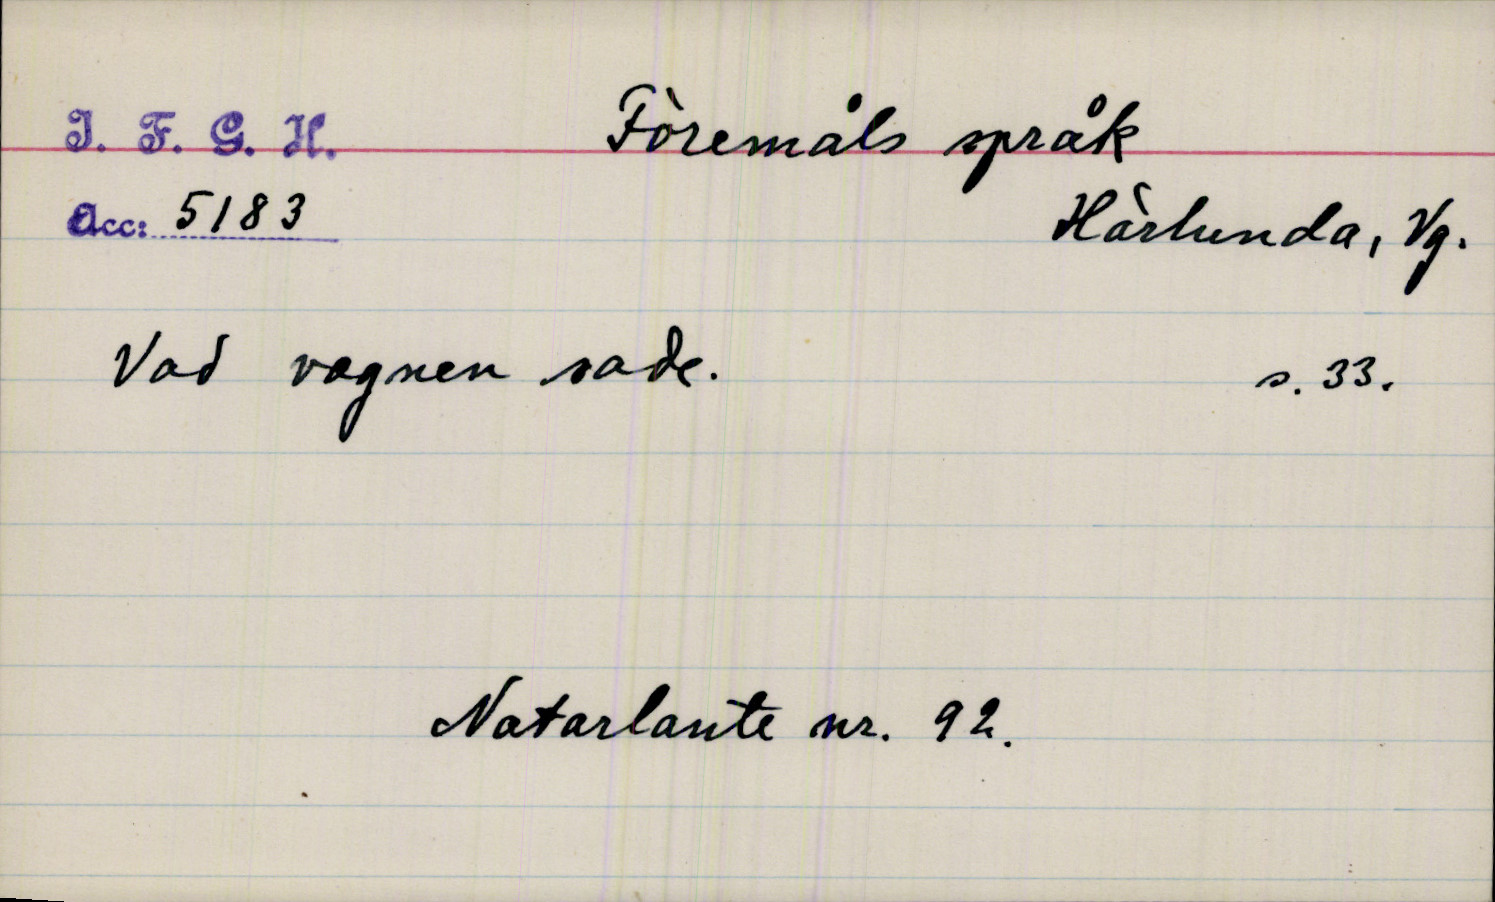 I. F. G. H.
Föremåls språk
Acc: 5183
Härlunda, Vg.
Vad vagnen sade. s. 33.
Naturlaute nr. 92.